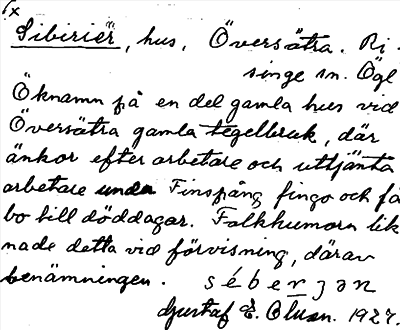 1x
Sibirier, hus, Översätra. Ri-
singe sn. Ögl
Öknamn på en del gamla hus vid
Översätra gamla tegelbruk, där
änkor efter arbetare och uttjänta
arbetare under Finspång fingo och få
bo till döddagar. Folkhumorn lik
nade detta vid förvisning, därav
benämningen. sébe
Gustaf E. Olsson. 1927.